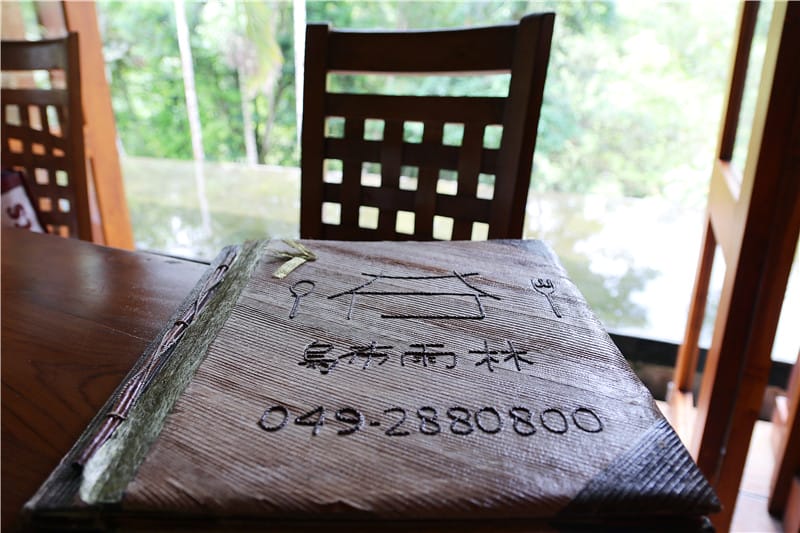 鳥布雨林
049-2880800